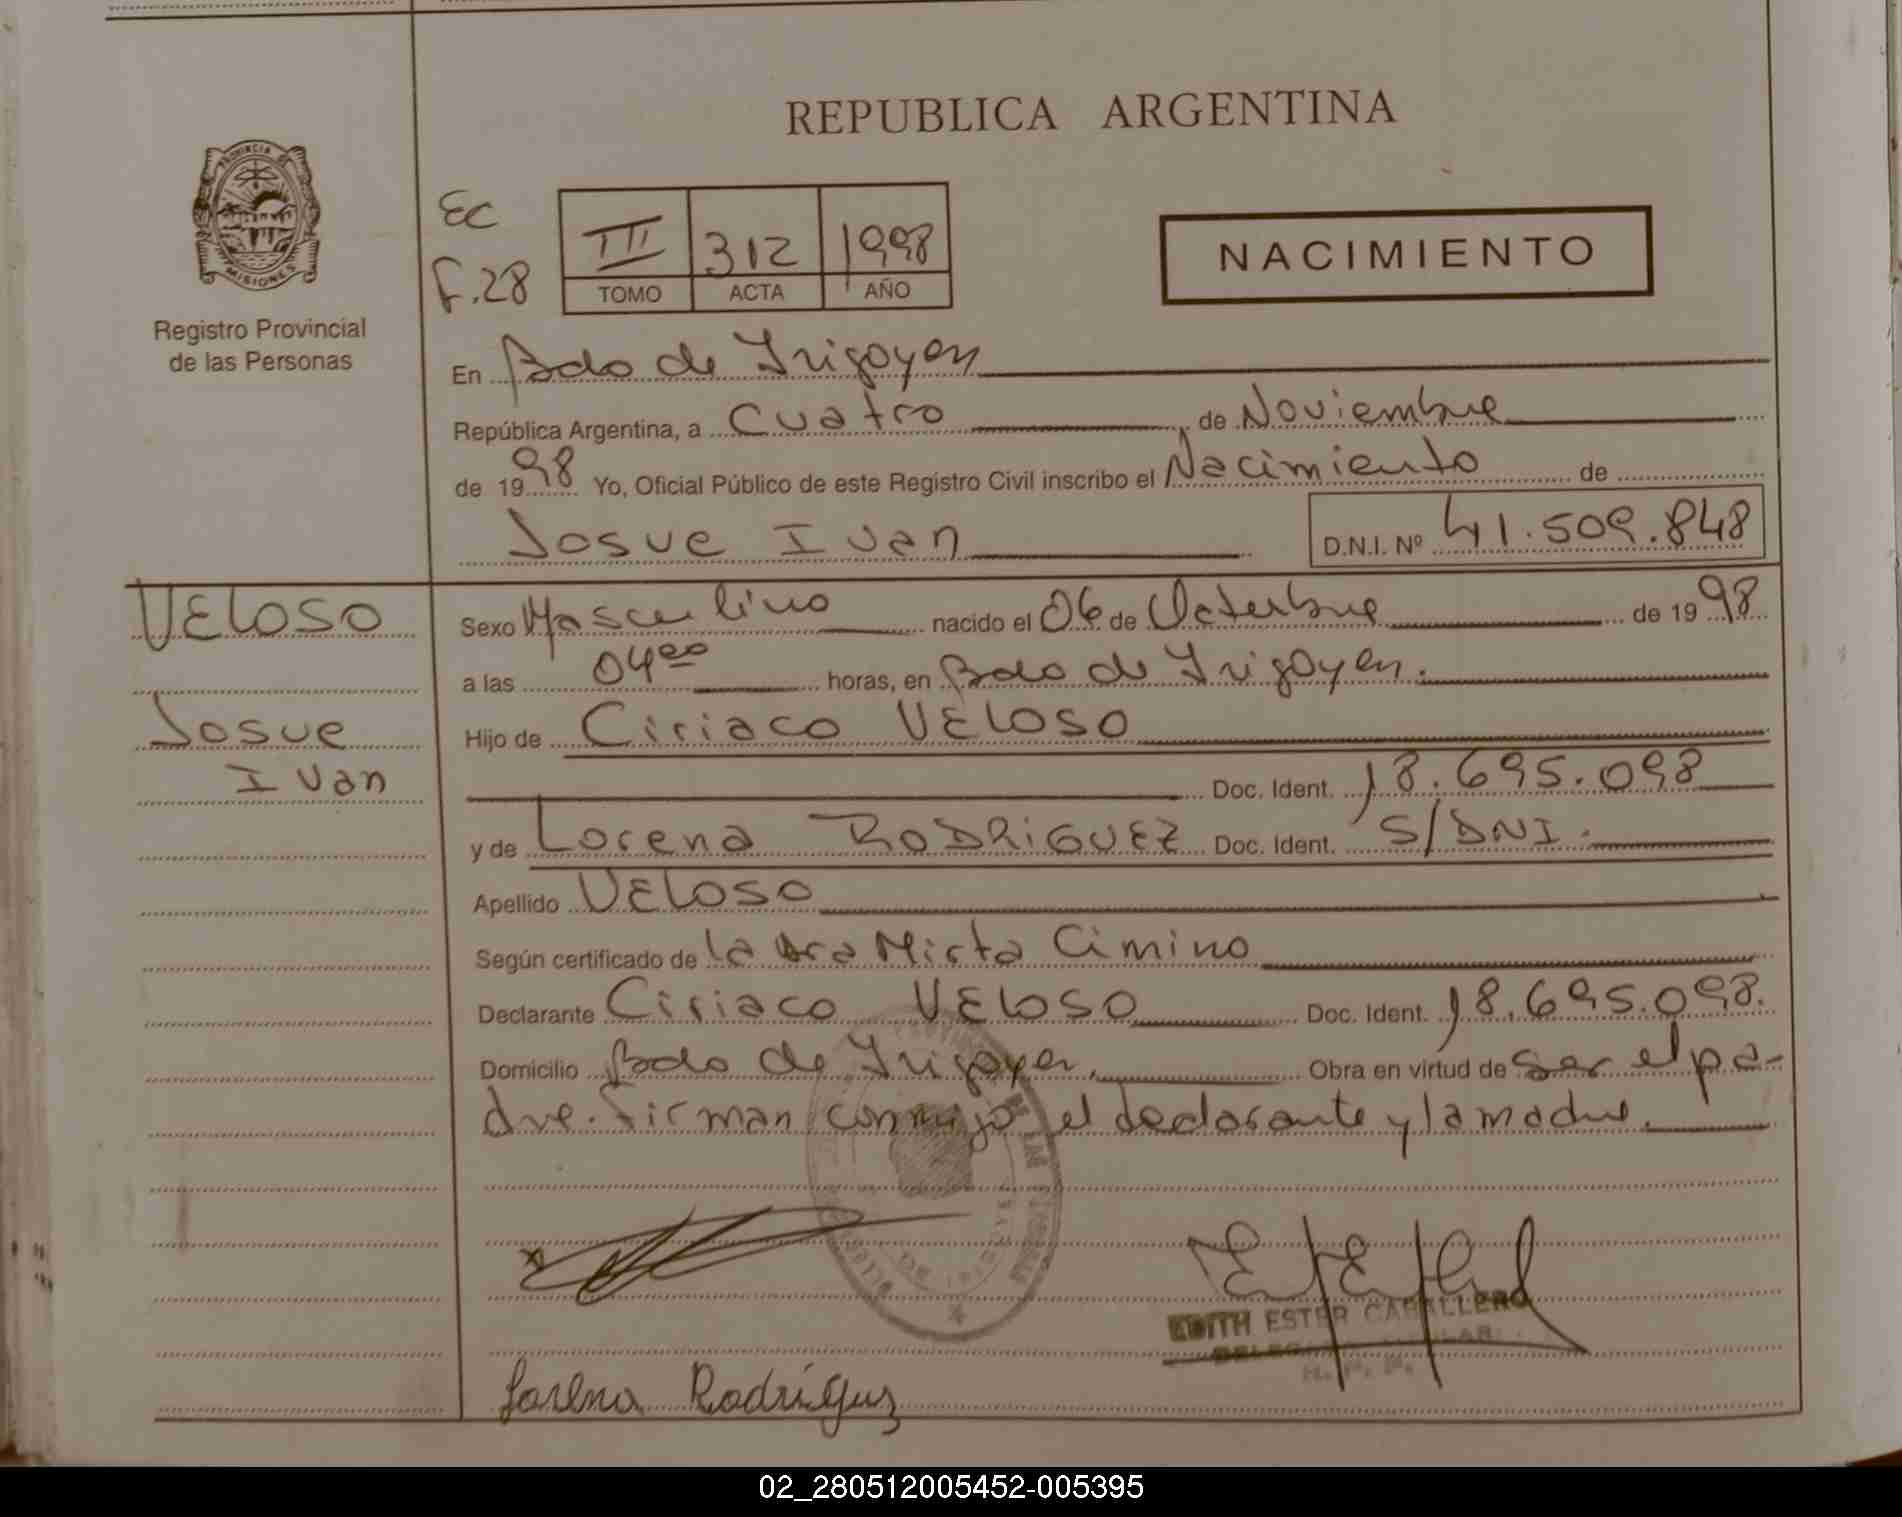 REPUBLICA ARGENTINA
PROVINCIA DE
MISIONES
Registro Provincial
de las Personas
EC
F.28
III 312 1998
TOMO ACTA AÑO
NACIMIENTO
En Bdo de Irigoyen
República Argentina, a Cuatro de Noviembre
de 1998 Yo, Oficial Público de este Registro Civil inscribo el Nacimiento de
Josue Ivan D.N.I. Nº 41.509.848
VELOSO
Josue
Ivan
Sexo Masculino nacido el 06 de Octubre de 1998
a las 04⁰⁰ horas, en Bdo de Irigoyen.
Hijo de Ciriaco VELOSO
Doc. Ident. 18.695.098
y de Lorena RODRIGUEZ Doc. Ident. S/DNI.
Apellido VELOSO
Según certificado de la Dra Mirta Cimino
Declarante Ciriaco VELOSO Doc. Ident. 18.695.098.
Domicilio Bdo de Irigoyen. Obra en virtud de ser el pa-
dre. Firman conmigo el declarante y la madre.
EDITH ESTER CABALLERO
Lorena Rodríguez
02_280512005452-005395